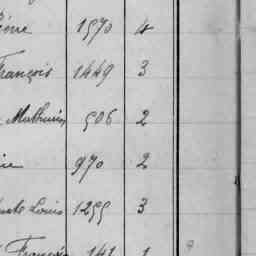 1570 4
François 1449 3
Mathurin 506 2
970 2
Louis 1299 3
François 141 1